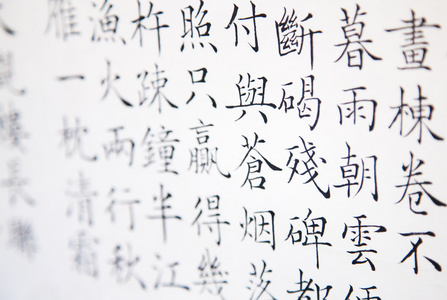 畫棟卷不
暮雨朝雲便
斷碣殘碑都
付與蒼烟落
照只贏得幾
杵疎鐘半江
漁火兩行秋
雁一枕清霜